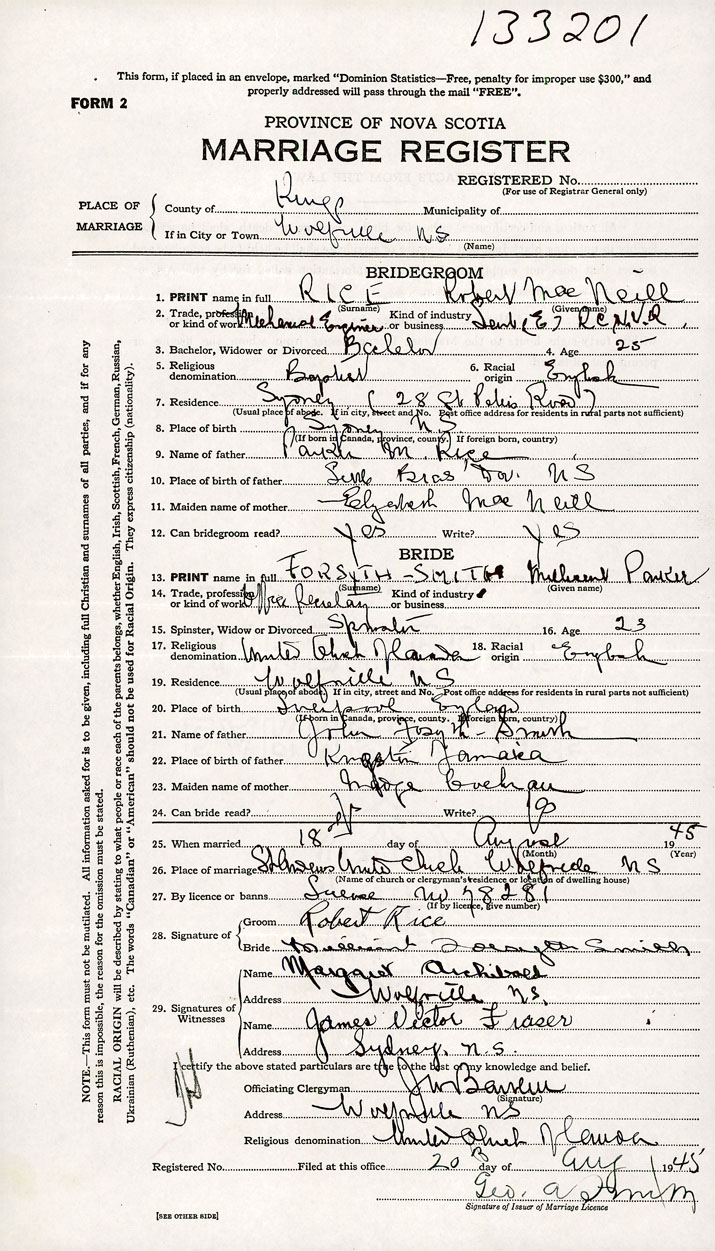 133201
This form, if placed in an envelope, marked "Dominion Statistics—Free, penalty for improper use $300," and
properly addressed will pass through the mail "FREE".
FORM 2
PROVINCE OF NOVA SCOTIA
MARRIAGE REGISTER
REGISTERED No.
(For use of Registrar General only)
PLACE OF MARRIAGE
County of Kings Municipality of
If in City or Town Wolfville NS
(Name)
BRIDEGROOM
1. PRINT name in full RICE Robert MacNeill
(Surname) (Given name)
2. Trade, profession or kind of work Mechanical Engineer Kind of industry or business Lieut (E) R.C.N.V.R.
3. Bachelor, Widower or Divorced Bachelor 4. Age 25
5. Religious denomination Baptist 6. Racial origin English
7. Residence Sydney (28 St Peters Road)
(Usual place of abode. If in city, street and No. Post office address for residents in rural parts not sufficient)
8. Place of birth Sydney NS
(If born in Canada, province, county. If foreign born, country)
9. Name of father Parker M. Rice
10. Place of birth of father Little Bras d'Or. NS
11. Maiden name of mother Elizabeth MacNeill
12. Can bridegroom read? Yes Write? Yes
BRIDE
13. PRINT name in full FORSYTH-SMITH Millicent Parker
(Surname) (Given name)
14. Trade, profession or kind of work Office Secretary Kind of industry or business
15. Spinster, Widow or Divorced Spinster 16. Age 23
17. Religious denomination United Church of Canada 18. Racial origin English
19. Residence Wolfville NS
(Usual place of abode. If in city, street and No. Post office address for residents in rural parts not sufficient)
20. Place of birth Liverpool England
(If born in Canada, province, county. If foreign born, country)
21. Name of father John Forsyth-Smith
22. Place of birth of father Kingston Jamaica
23. Maiden name of mother Cochran
24. Can bride read? Write?
25. When married 18 day of August 1945
(Month) (Year)
26. Place of marriage St Andrews United Church Wolfville NS
(Name of church or clergyman's residence or location of dwelling house)
27. By licence or banns License No 78281
(If by licence, give number)
28. Signature of Groom Robert Rice
Bride Millicent Forsyth Smith
29. Signatures of Witnesses
Name Margaret Archibald
Address Wolfville NS.
Name James Victor Fraser
Address Sydney, N.S.
I certify the above stated particulars are true to the best of my knowledge and belief.
Officiating Clergyman
(Signature)
Address Wolfville NS
Religious denomination United Church of Canada
Registered No. Filed at this office 20 day of Aug 1945
Geo. A
Signature of Issuer of Marriage Licence
[SEE OTHER SIDE]
NOTE.—This form must not be mutilated. All information asked for is to be given, including full Christian and surnames of all parties, and if for any
reason this is impossible, the reason for the omission must be stated.
RACIAL ORIGIN will be described by stating to what people or race each of the parents belongs, whether English, Irish, Scottish, French, German, Russian,
Ukrainian (Ruthenian), etc. The words "Canadian" or "American" should not be used for Racial Origin. They express citizenship (nationality).